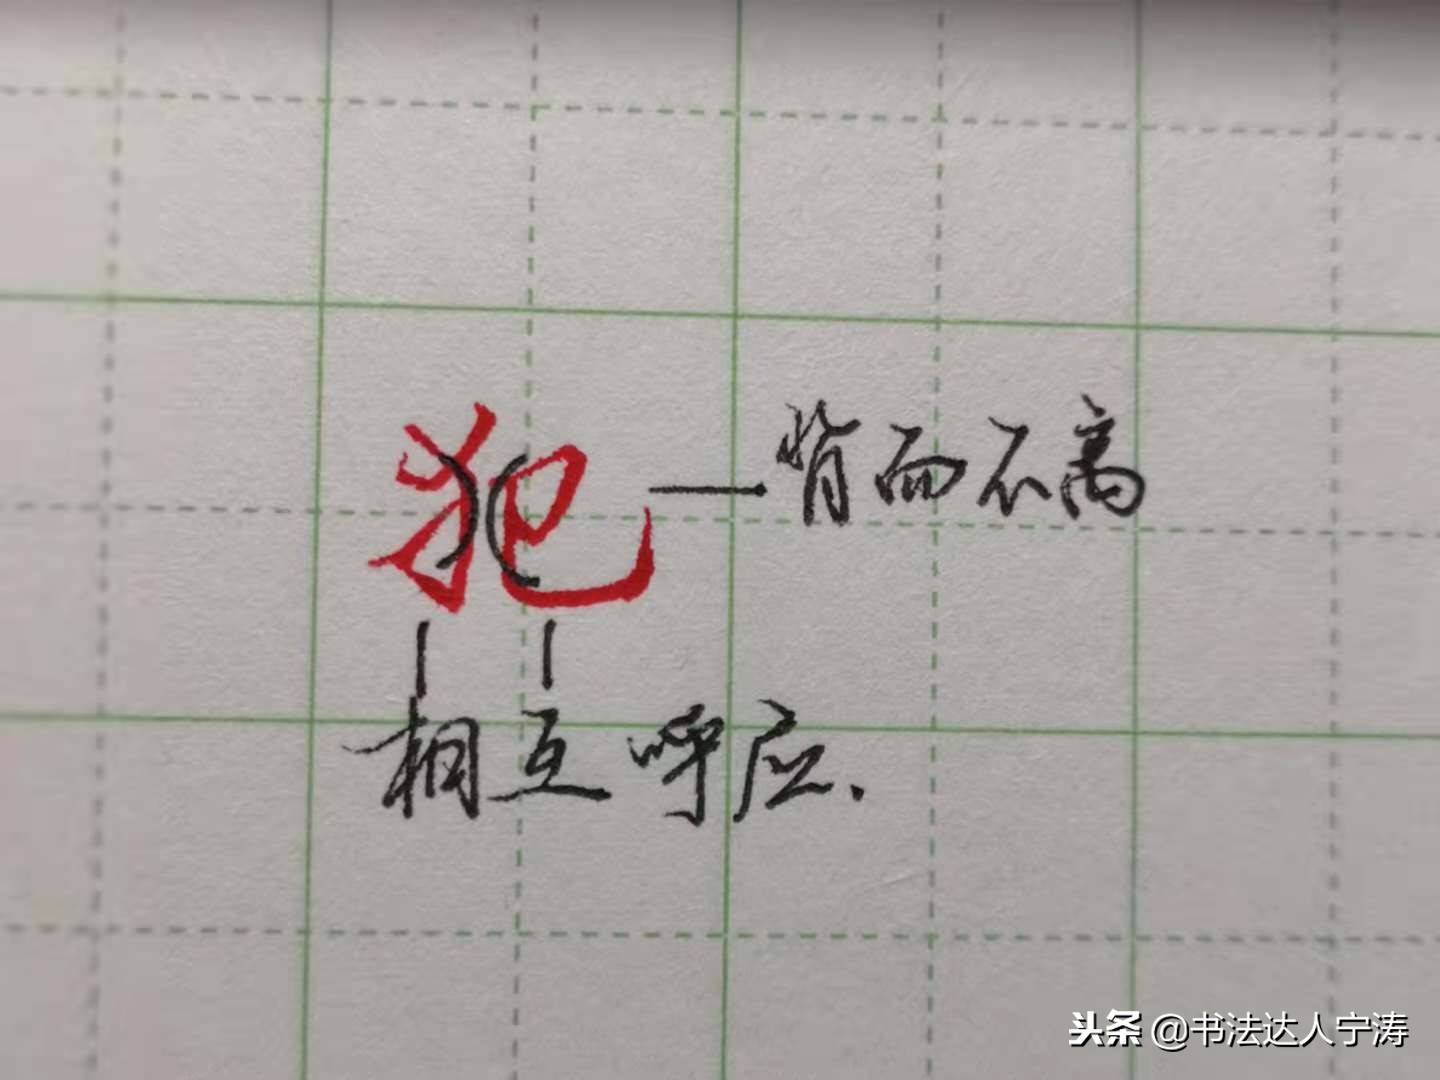 犯
背而不离
相互呼应.
头条 @书法达人宁涛